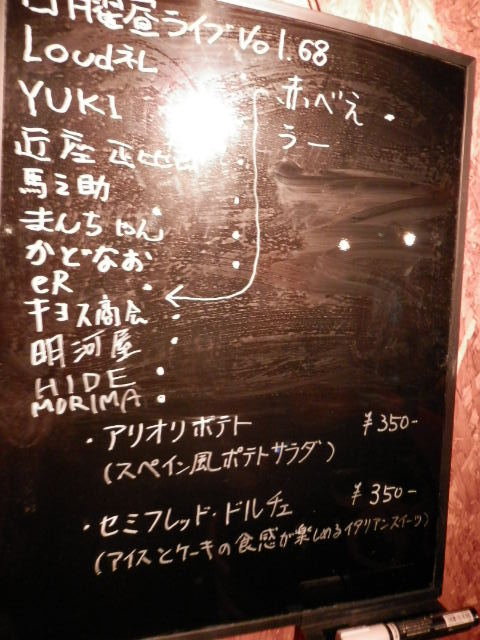 日曜昼ライブ Vol.68
Loud礼
YUKI
赤っべえ
らー
近座
馬之助
まんちゃん
かどなお
eR
キヨス商会
明河屋
HIDE
MORIMA
・アリオリポテト ¥350-
(スペイン風ポテトサラダ)
・セミフレッド・ドルチェ ¥350-
(アイスとケーキの食感が楽しめるイタリアンスイーツ)